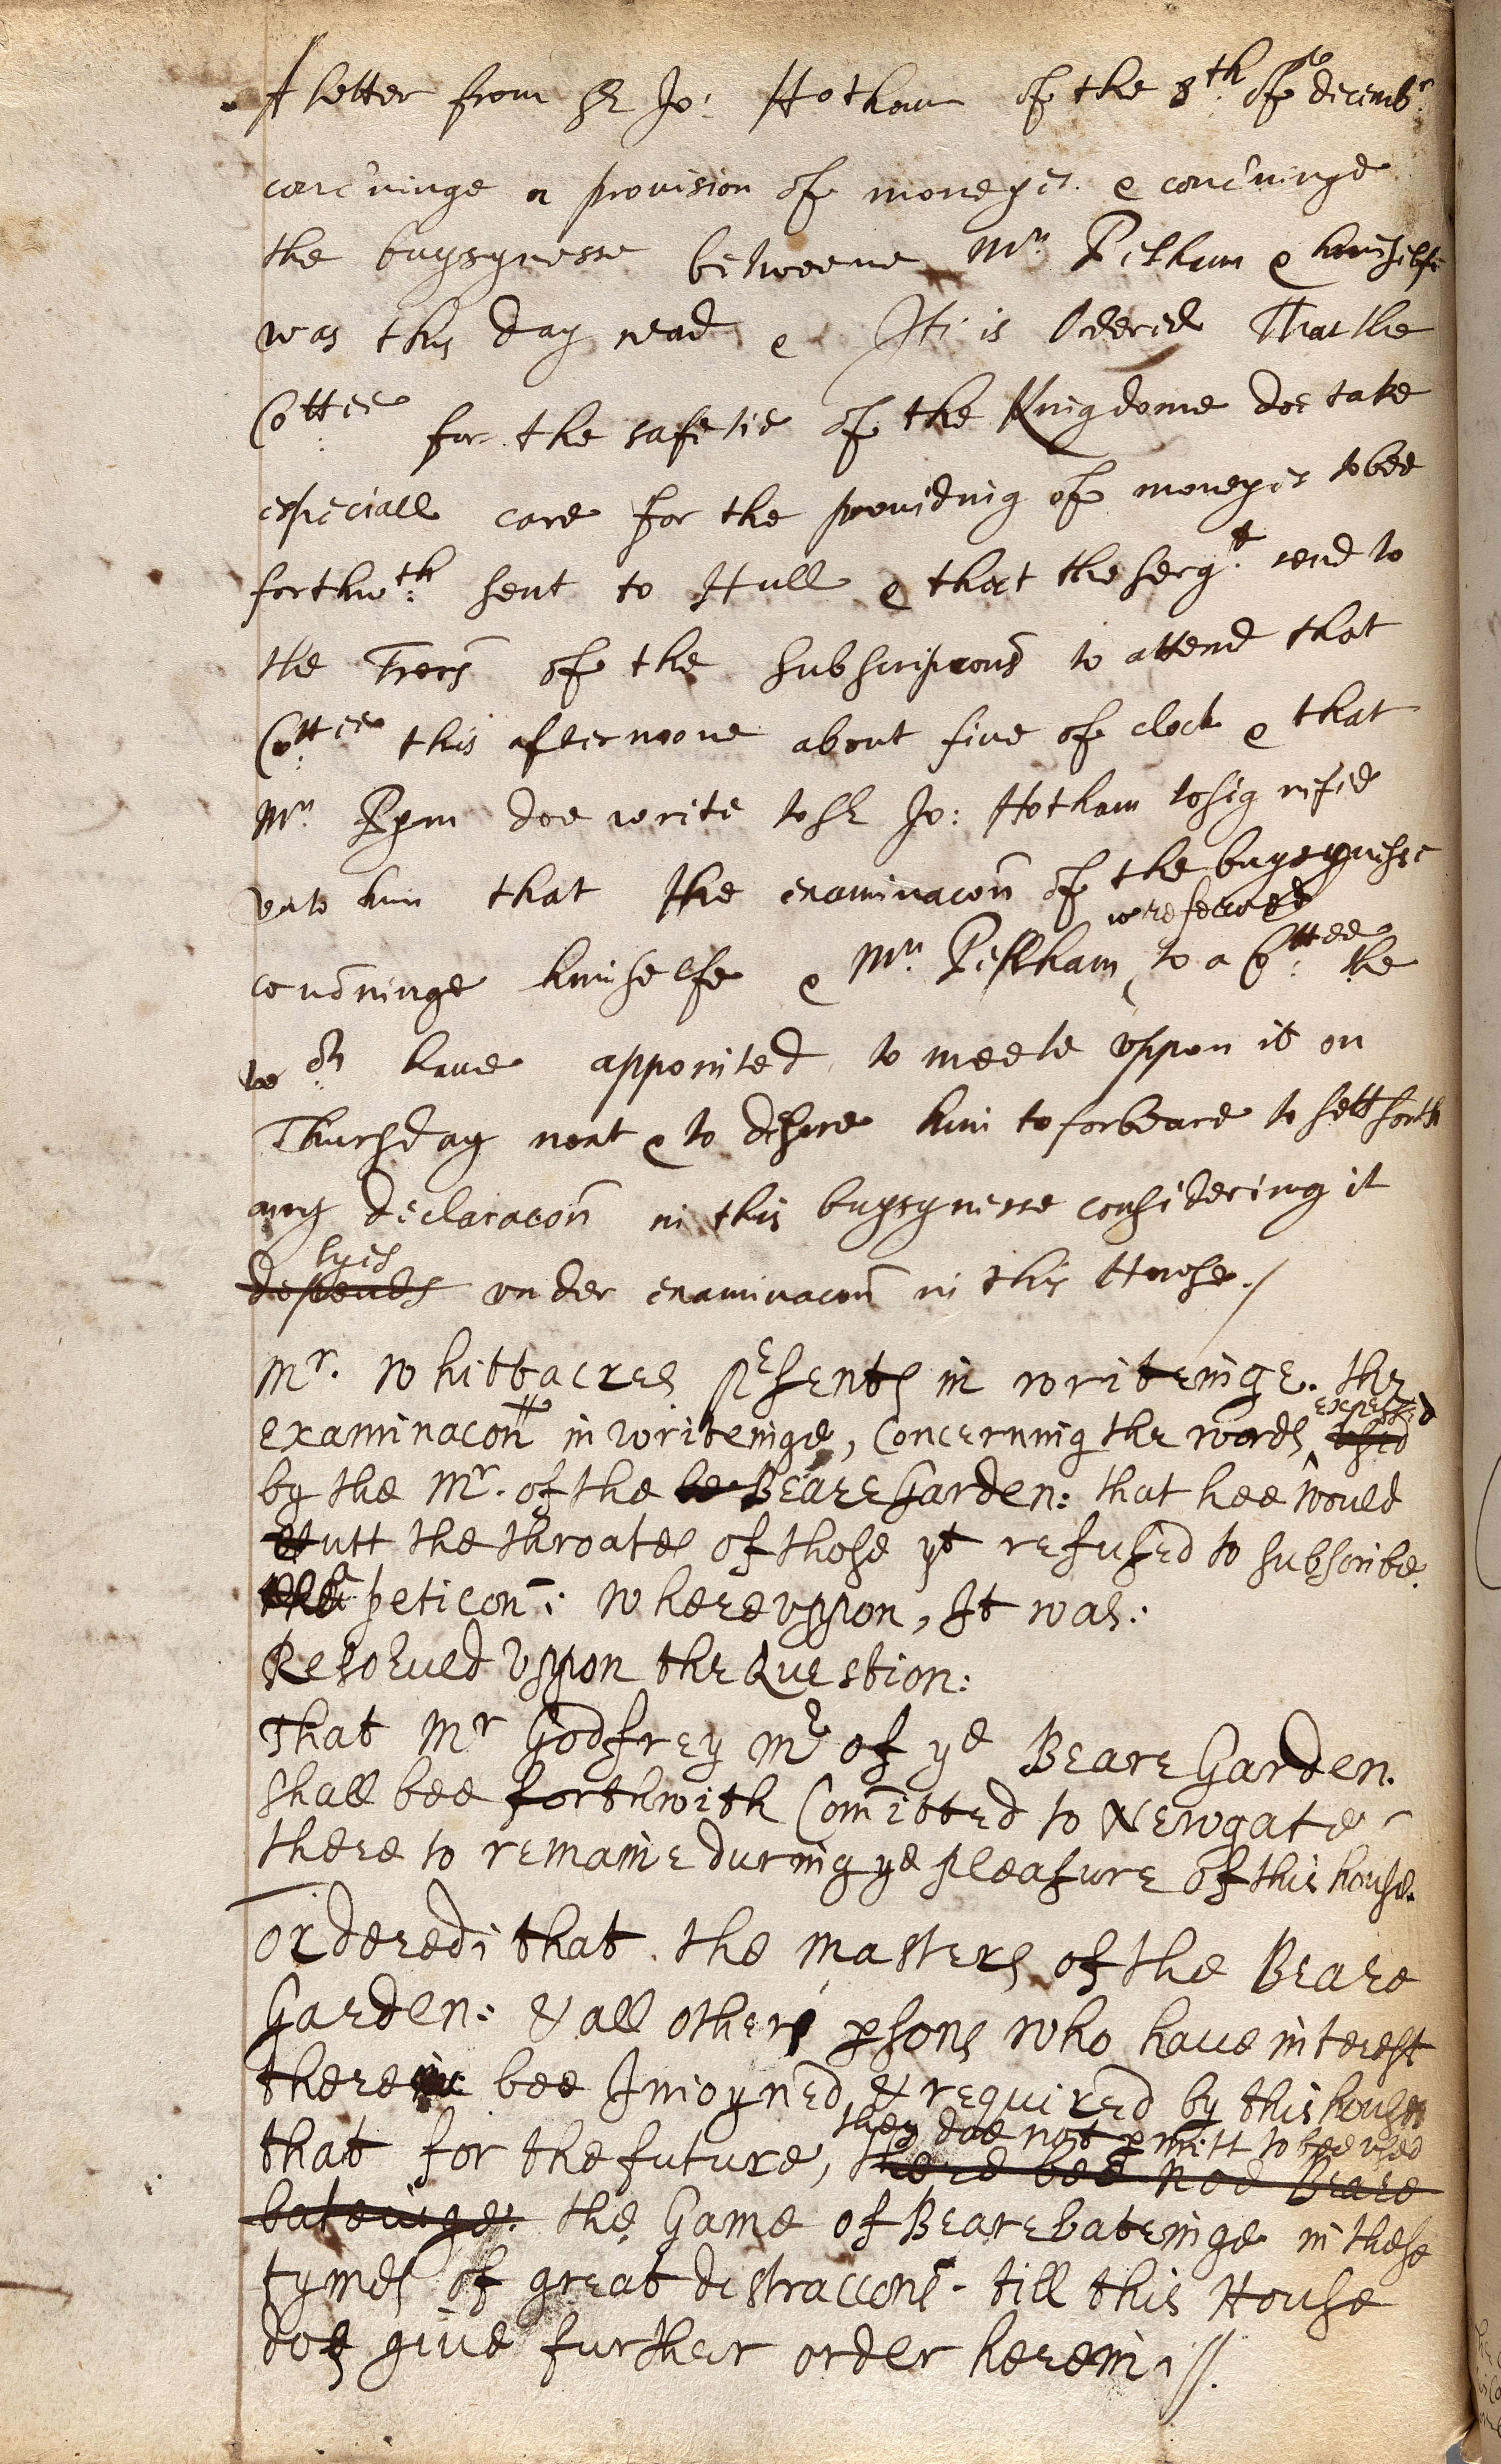 A letter from Sr Jo: Hotham of the 8th of decembr
conc'ninge a provision of moneyes & conc'ninge
the buysynesse betweene Mr Pelham & himselfe
was this day read & It is Ordered That the
Cottee for the safetie of the Kingdome doe take
especiall care for the providing of moneyes to bee
forthwth sent to Hull & that the sergt send to
the Trers of the subscripcons to attend that
Cottee this afternoone about five of clock & that
Mr Pym doe write to Sr Jo: Hotham to signifie
vnto him that the examinacon of the buysynesse
is referred
concninge himselfe & Mr Pellham ‸ to a Cottee the
wch have appointed to meete vppon it on
Thursday next & to desire him to forbeare to sett forth
any declaracon in this buysynesse considering it
lyes
depends vnder examinacon in this House./
Mr. Whittacres prsents in writeinge. the
expressed
examinacon in writeinge, Concerning the words ‸ vsed
by the Mr. of the be Beare Garden: that hee would
Cutt the throates of those yt refused to subscribe
a peticon: Whereuppon, It was:
Resolved Vppon the Question:
That Mr Godfrey Mr of ye Beare Garden.
shall bee forthwith Comitted to Newgate
there to remaine during ye pleasure of this house.
Ordered: that the Masters of the Beare
Garden: & all other psons who have interest
therein bee Inioyned & required by this house
they doe not pmitt to bee vsed
that for the future, there bee noe Beare
bateinge. the Game of Bearebateinge in these
tymes of great distraccons. till this House
doe give further order herein.//.